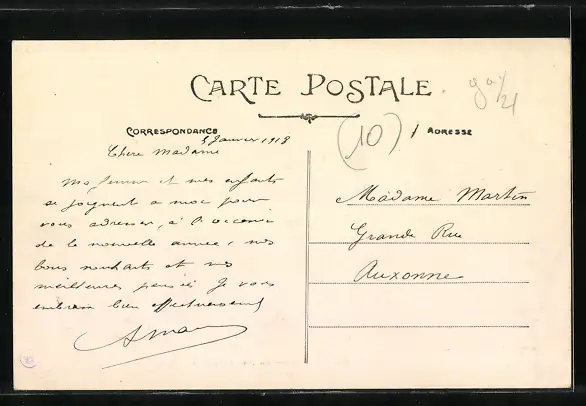 CARTE POSTALE
CORRESPONDANCE
ADRESSE
(10)
5 Janvier 1918
Chere Madame
Ma femme et mes enfants
se joignent a moi pour
vous adresser, à l'occasion
de la nouvelle annee, nos
bons souhaits et nos
meilleures pensées Je vous
embrasse bien affectueusement
Madame Martin
Grande Rue
Auxonne